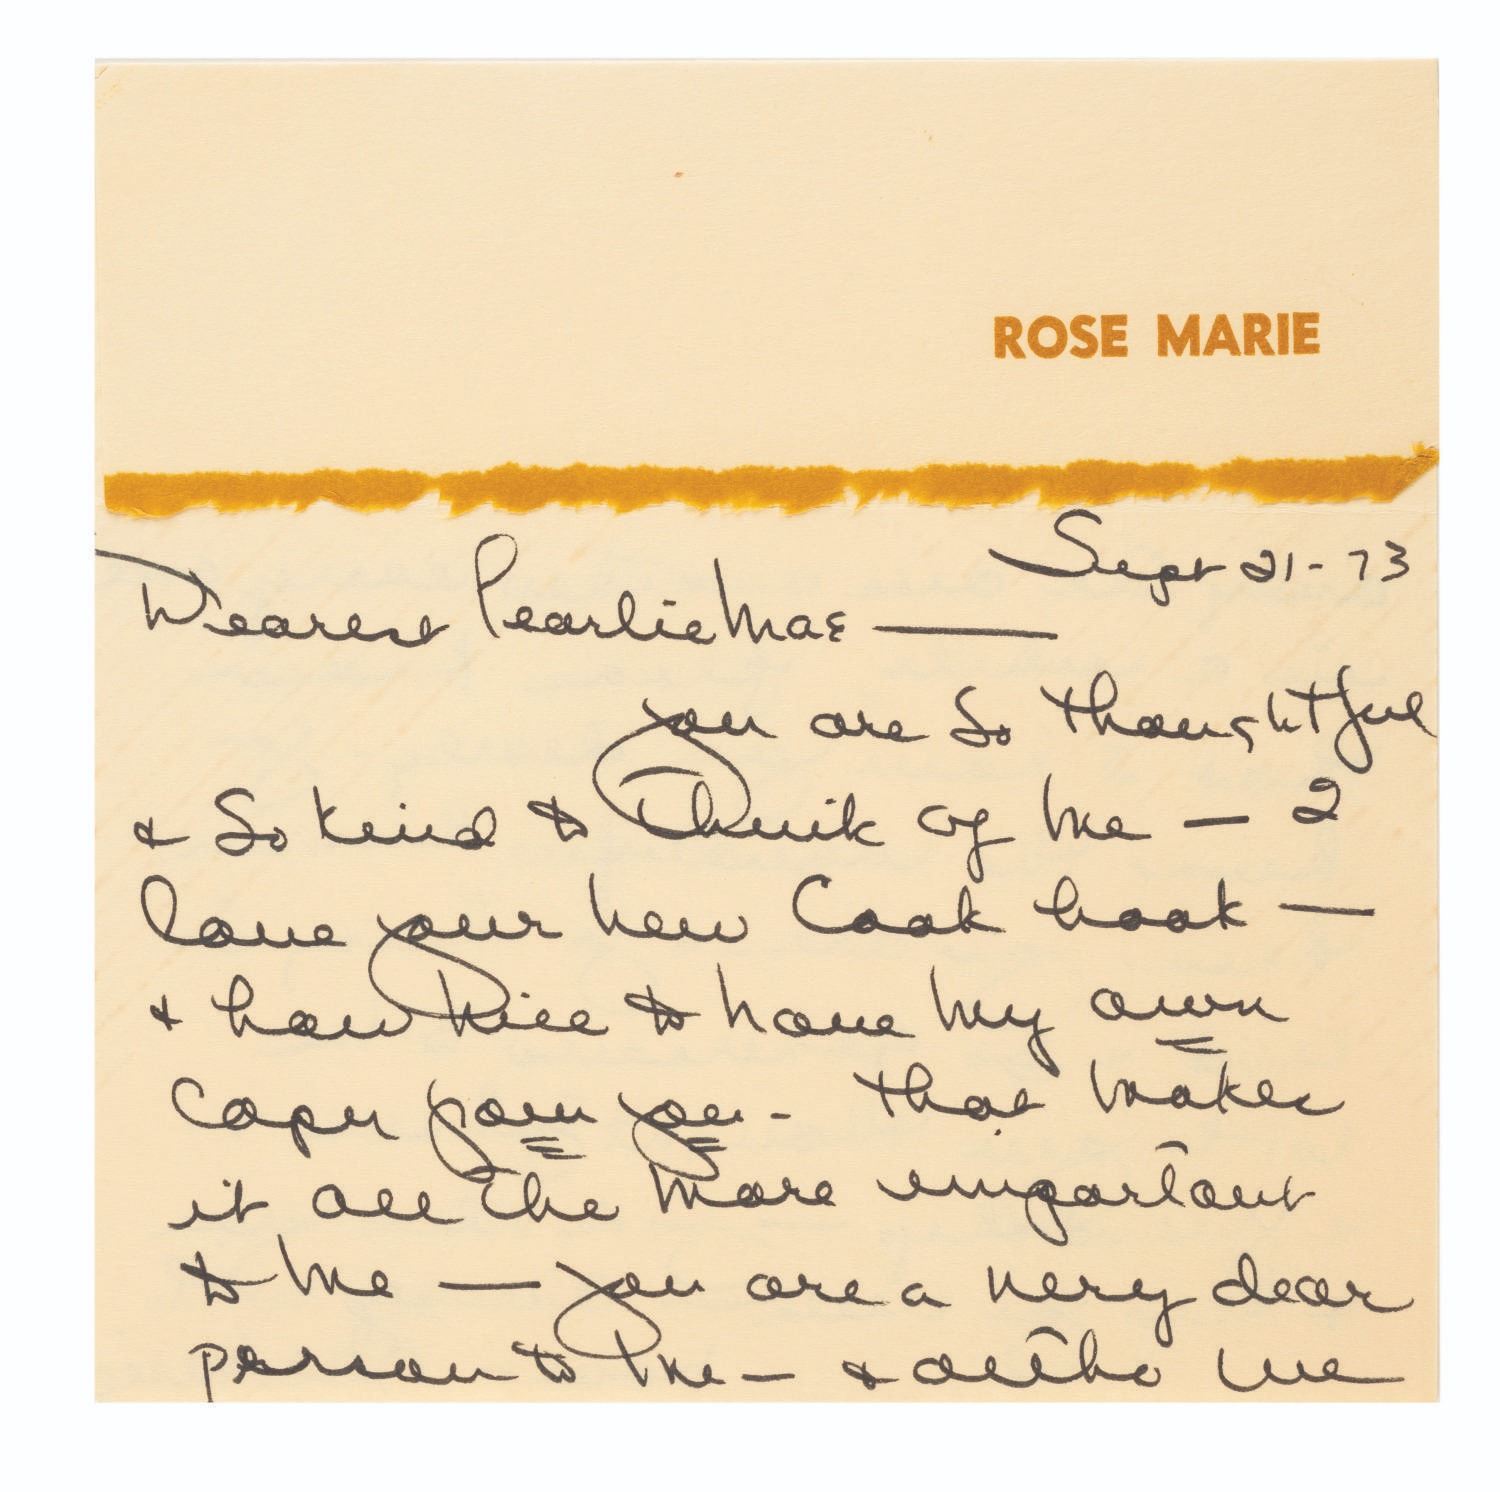 ROSE MARIE
Sept 21-73
Dearest Pearlie Mae —
you are so thoughtful
& so kind to think of me — I
love your new Cook book —
& how nice to have my own
copy from you - that makes
it all the more important
to me — you are a very dear
person to me — & altho we